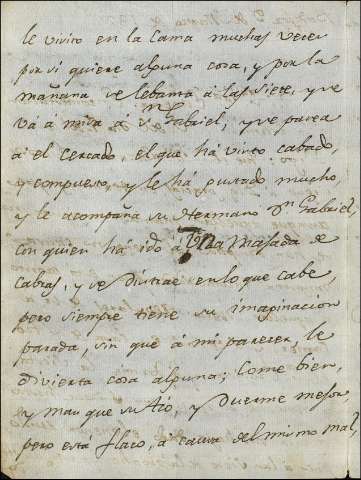 le visito en la Cama muchas veces
por si quiere alguna cosa, y por la
mañana se lebanta á las siete, y se
vá á misa á Sn. Gabriel, y se pasea
á el Cercado, el que há visto cabado,
y compuesto, y le há gustado mucho
y le acompaña su Hermano Dn. Gabriel
con quien há ido á la Masada de
Cabras, y se distrae en lo que cabe,
pero siempre tiene su imaginacion
parada, sin que á mi parecer, le
divierta cosa alguna; Come bien,
y mas que su tio, y Duerme mejor,
pero está flaco, á causa del mismo mal,